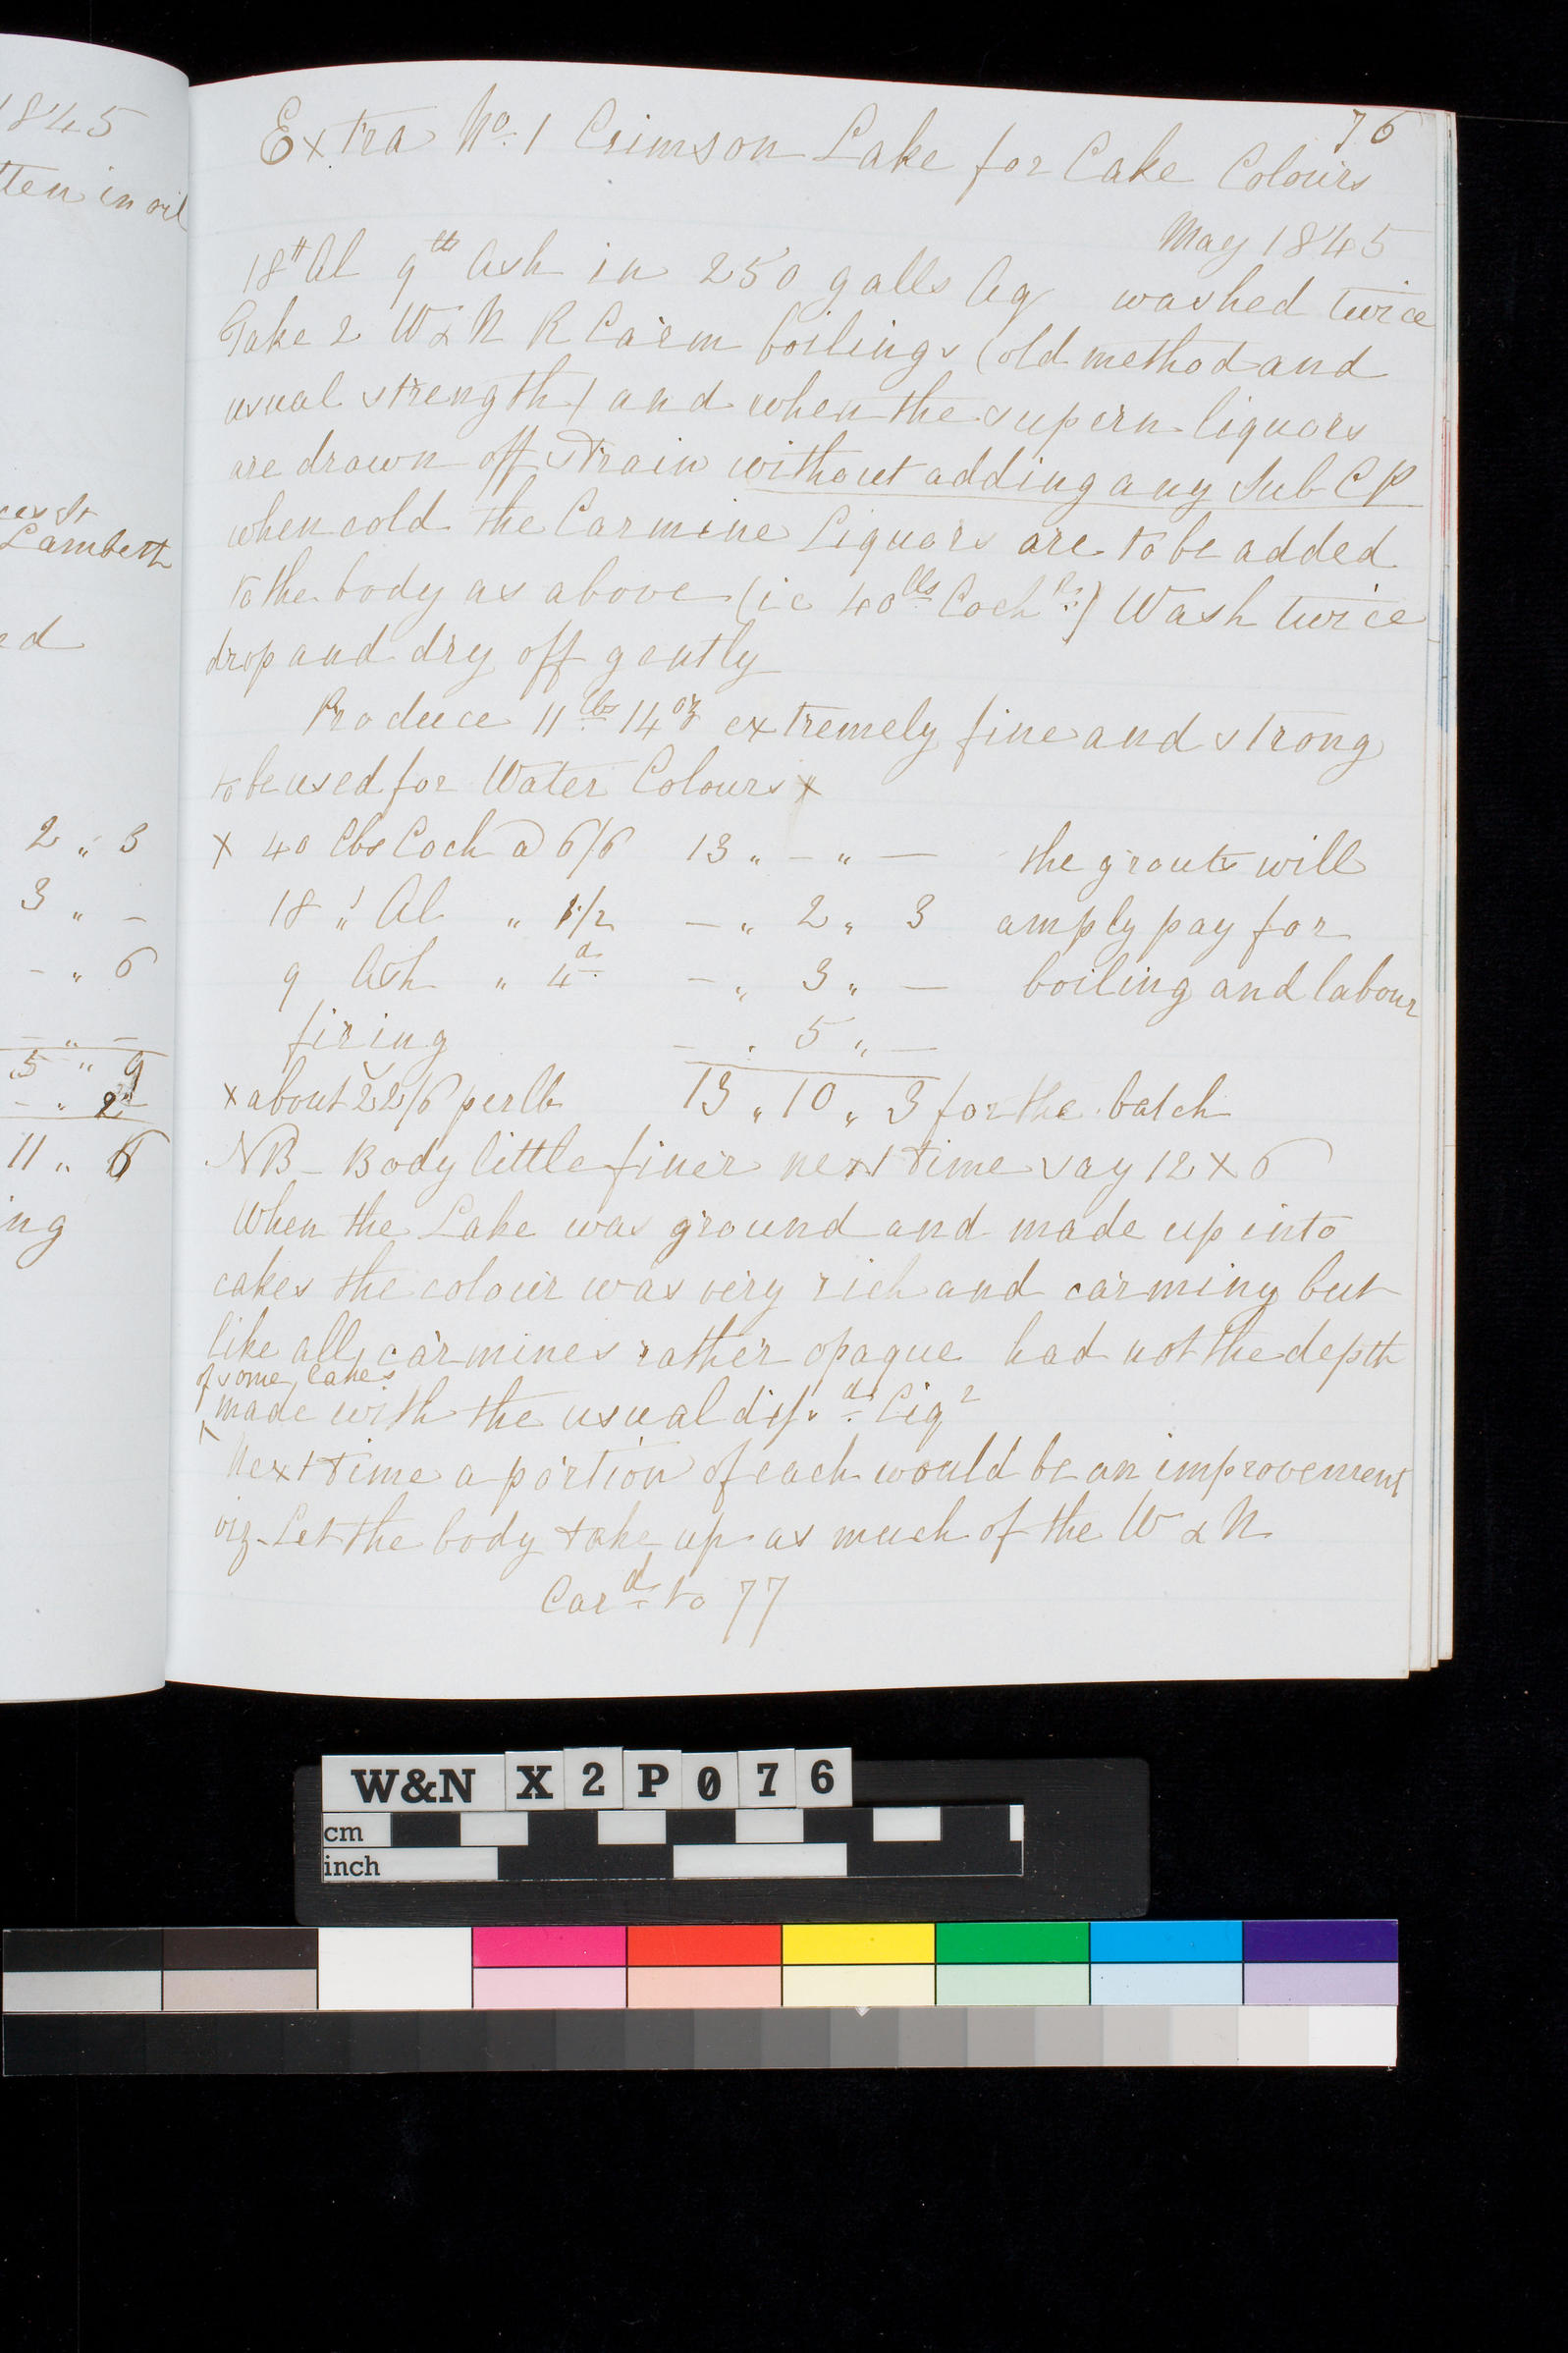 1845
tten in oil
Lambert
ed
2 " 3
3 " -
- " 6
- " -
5 " 9
- " 2
11 " 6
ing
76
Extra No. 1 Crimson Lake for Cake Colours
May 1845
18 lb Al 9 lb Ash in 250 galls Aq washed twice
Take 2 W & N R Carm boilings (old method and
usual strength) and when the supern liquors
are drawn off strain without adding any Sub C P
when cold the Carmine Liquors are to be added
to the body as above (ie 40 lbs Coch l:) Wash twice
drop and dry off gently
Produce 11 lbs 14 oz extremely fine and strong
to be used for Water Colours x
x 40 lbs Coch @ 6/6 13 " - " - the grouts will
18 " Al " 1 1/2 - " 2 " 3 amply pay for
9 Ash " 4d - " 3 " - boiling and labour
firing - " 5 " -
x about 22/6 per lb 13 " 10 " 3 for the batch
NB - Body little finer next time say 12 x 6
When the Lake was ground and made up into
cakes the colour was very rich and carminy but
like all carmines rather opaque had not the depth
of some Lakes
made with the usual dif.d Liq
Next time a portion of each would be an improvement
viz - Let the body take up as much of the W & N
Card to 77
W&N X 2 P 0 7 6
cm
inch